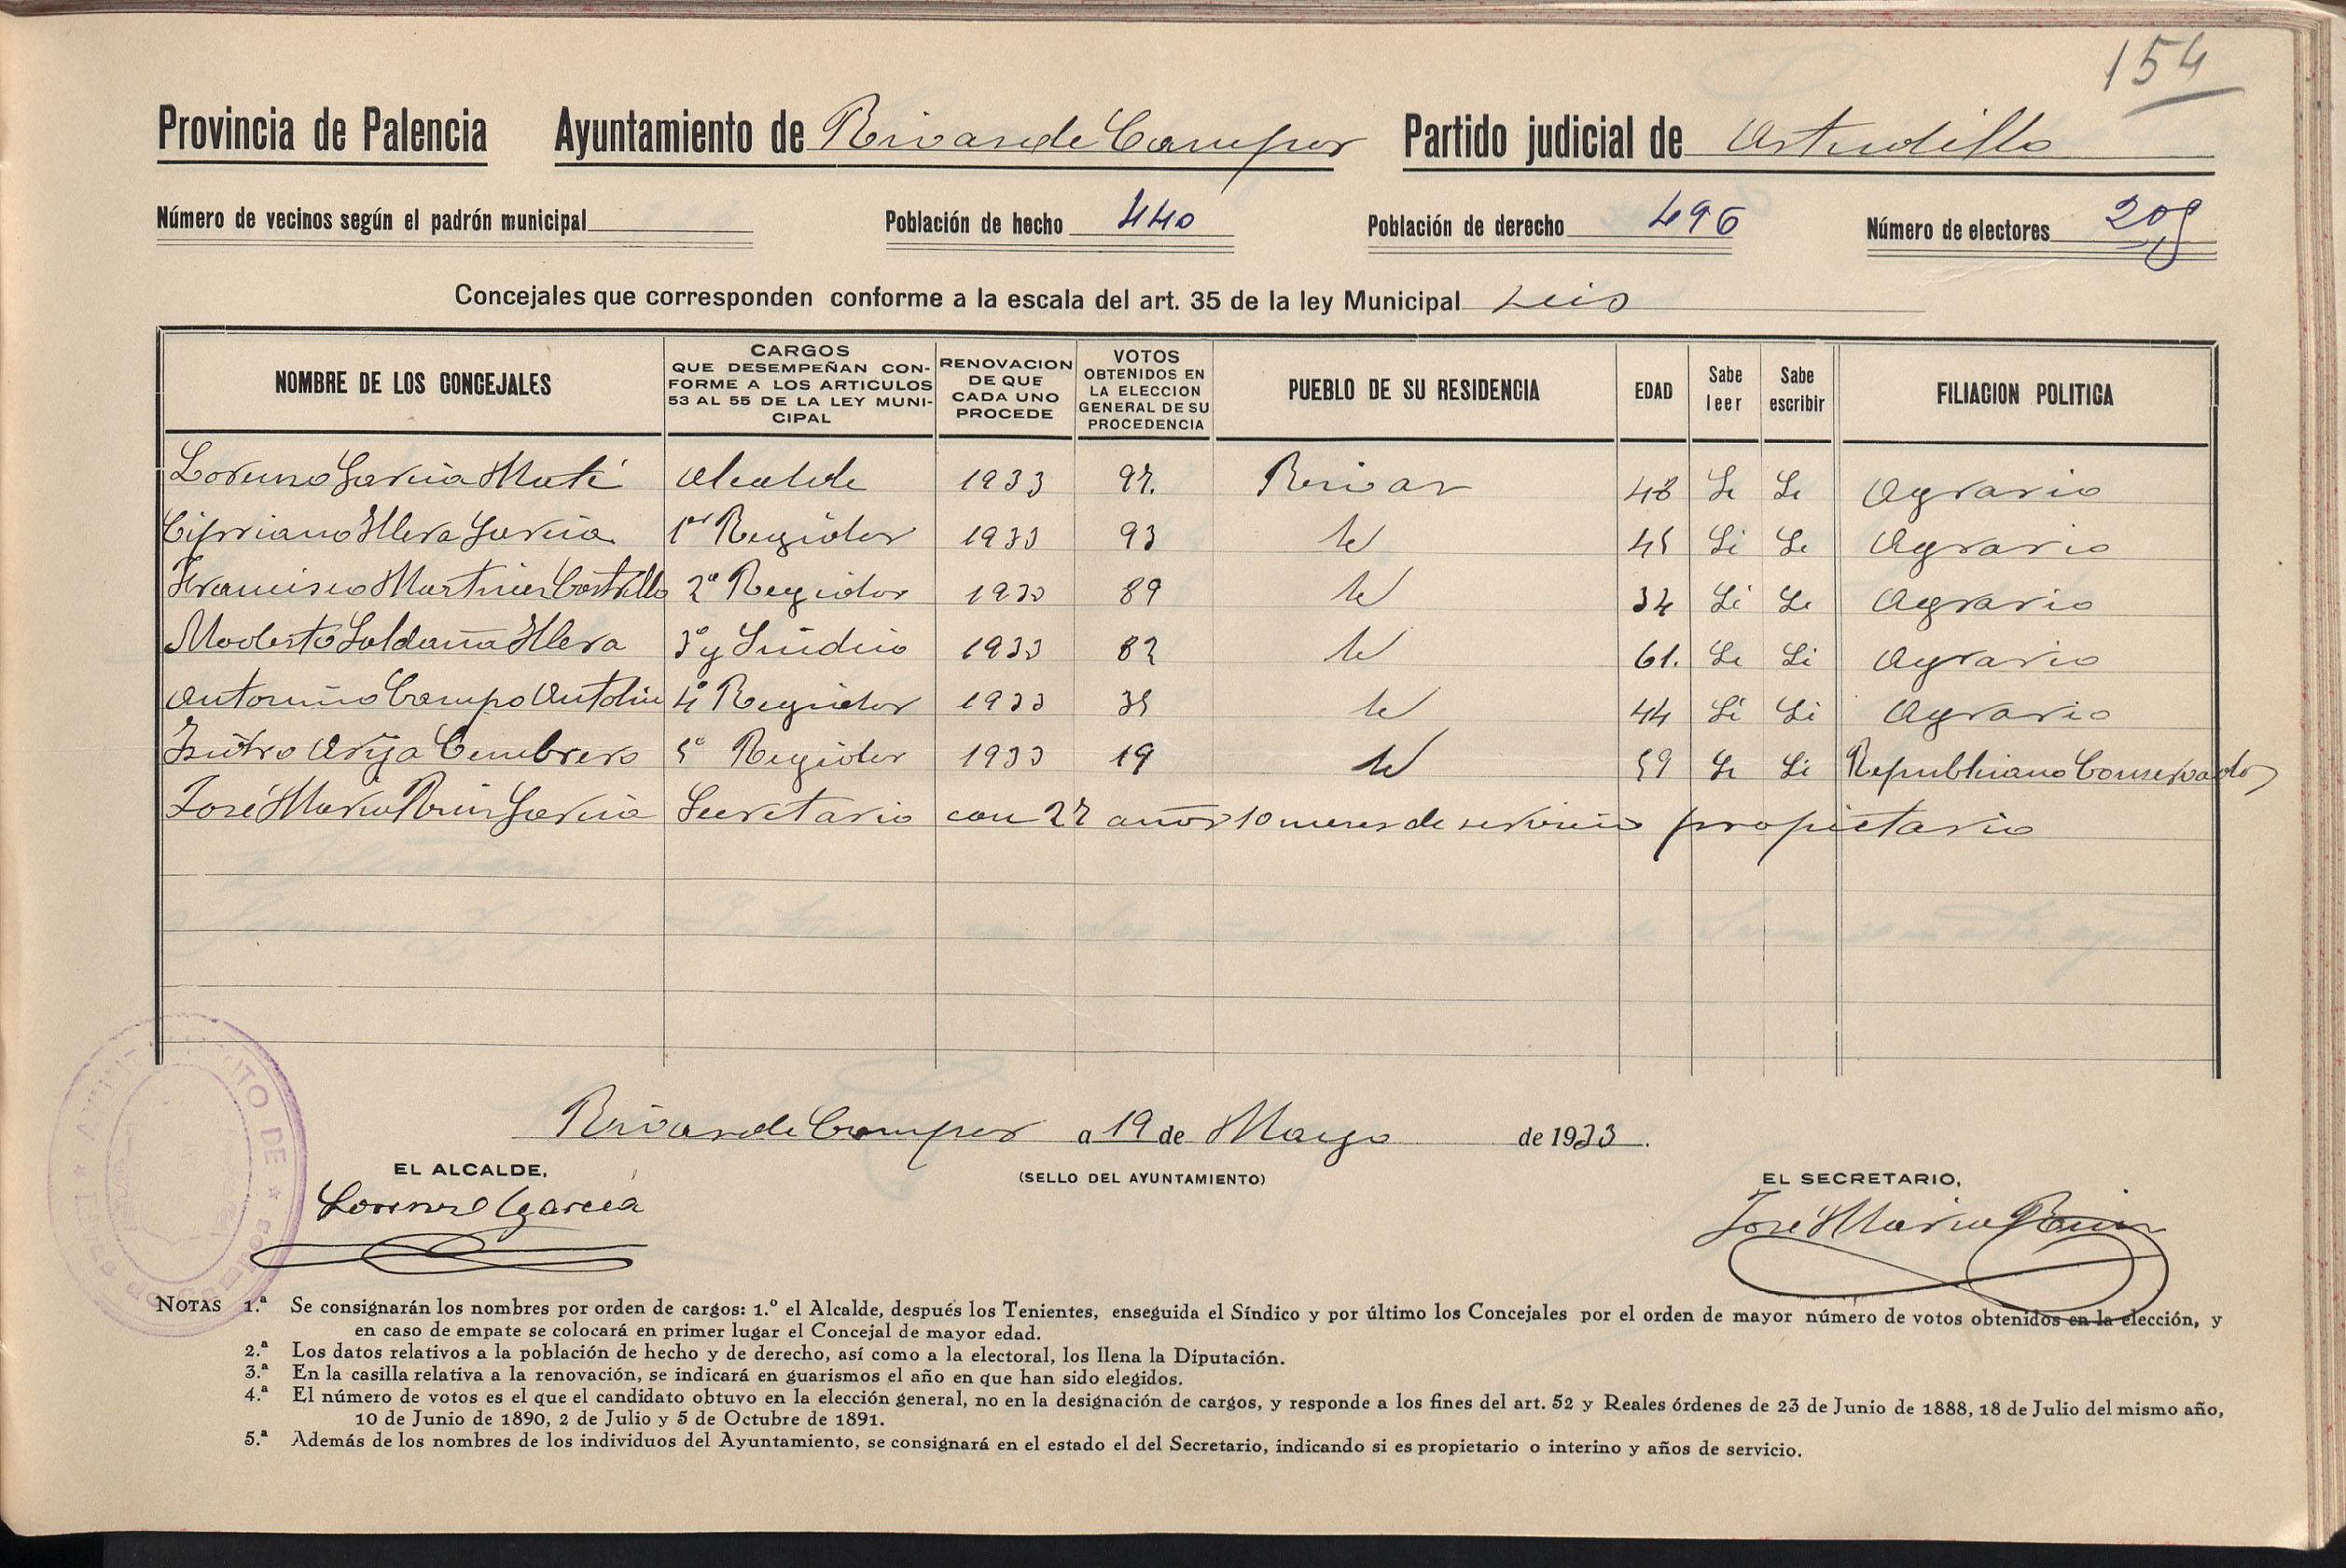 154
Provincia de Palencia Ayuntamiento de Rivas de Campos Partido judicial de Astudillo
Número de vecinos según el padrón municipal Población de hecho 440 Población de derecho 496 Número de electores 209
Concejales que corresponden conforme a la escala del art. 35 de la ley Municipal Seis
NOMBRE DE LOS CONCEJALES CARGOS QUE DESEMPEÑAN CONFORME A LOS ARTICULOS 53 AL 55 DE LA LEY MUNICIPAL RENOVACION DE QUE CADA UNO PROCEDE VOTOS OBTENIDOS EN LA ELECCION GENERAL DE SU PROCEDENCIA PUEBLO DE SU RESIDENCIA EDAD Sabe leer Sabe escribir FILIACION POLITICA
Lorenzo García Maté Alcalde 1933 97. Rivas 48 Si Si Agrario
Cipriano Illera García 1er Regidor 1933 93 Id 45 Si Si Agrario
Francisco Martinez Castrillo 2º Regidor 1933 89 Id 34 Si Si Agrario
Modesto Saldaña Illera 3º y Sindico 1933 82 Id 61. Si Si Agrario
Antonino Campo Antolin 4º Regidor 1933 35 Id 44 Si Si Agrario
Isidro Arija Cembrero 5º Regidor 1933 19 Id 59 Si Si Republicano Conservador
José Maria Ruiz García Secretario con 27 años 10 meses de servicio propietario
Rivas de Campos a 19 de Mayo de 1933.
EL ALCALDE, (SELLO DEL AYUNTAMIENTO) EL SECRETARIO,
Lorenzo Garcia José Maria Ruiz
NOTAS 1.ª Se consignarán los nombres por orden de cargos: 1.º el Alcalde, después los Tenientes, enseguida el Síndico y por último los Concejales por el orden de mayor número de votos obtenidos en la elección, y
en caso de empate se colocará en primer lugar el Concejal de mayor edad.
2.ª Los datos relativos a la población de hecho y de derecho, así como a la electoral, los llena la Diputación.
3.ª En la casilla relativa a la renovación, se indicará en guarismos el año en que han sido elegidos.
4.ª El número de votos es el que el candidato obtuvo en la elección general, no en la designación de cargos, y responde a los fines del art. 52 y Reales órdenes de 23 de Junio de 1888, 18 de Julio del mismo año,
10 de Junio de 1890, 2 de Julio y 5 de Octubre de 1891.
5.ª Además de los nombres de los individuos del Ayuntamiento, se consignará en el estado el del Secretario, indicando si es propietario o interino y años de servicio.